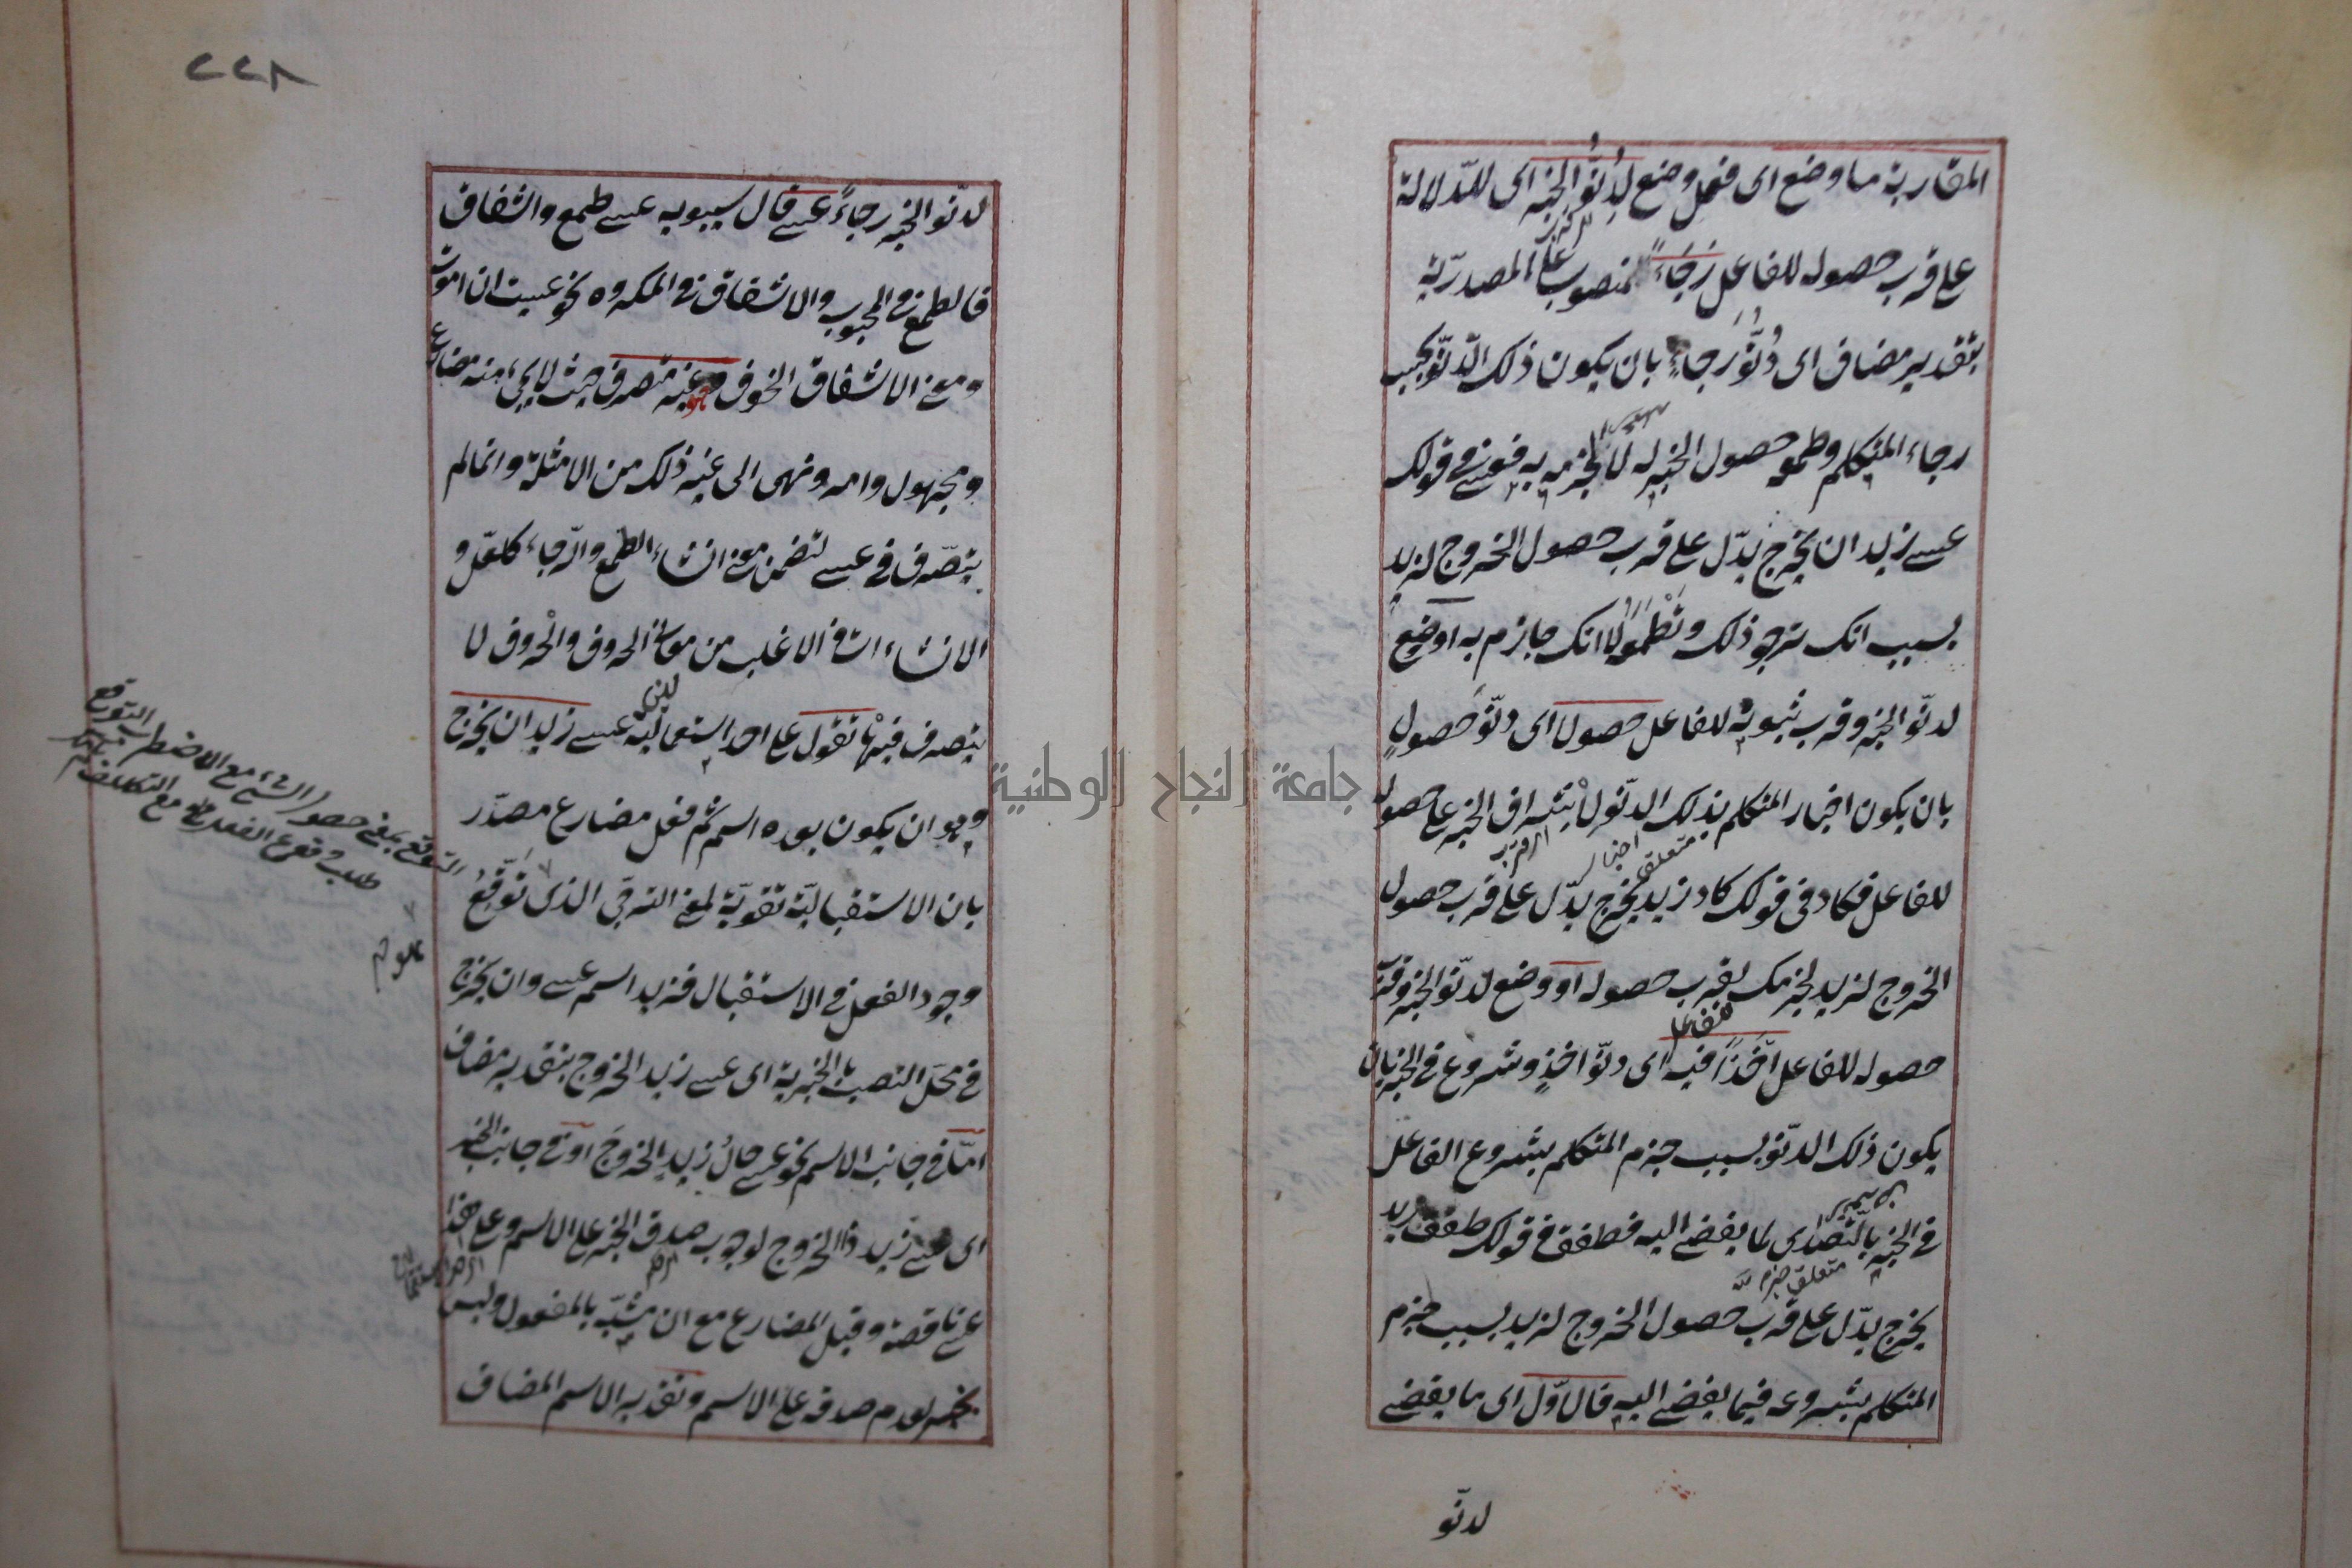 المقاربة ما وضع اى فعل وضع لدنو الخبر اى للدلالة
على قرب حصوله للفاعل رجاء منصوب على المصدرية
بتقدير مضاف اى دنو رجاء بان يكون ذلك الدنو بحسب
رجاء المتكلم وطمعه حصول الخبر له لا لجزمه به فعسى فى قولك
عسى زيد ان يخرج يدل على قرب حصول الخروج لزيد
بسبب انك ترجو ذلك وتطمعه لا انك جازم به او وضع
لدنو الخبر وقرب ثبوته للفاعل حصولا اى دنو حصول
بان يكون اخبار المتكلم بذلك الدنو لاشراف الخبر على حصوله
للفاعل فكاد فى قولك كاد زيد يخرج يدل على قرب حصول
الخروج لزيد لجزمك بقرب حصوله او وضع لدنو الخبر وقرب
حصوله للفاعل اخذا فيه اى دنو اخذ وشروع فى الخبر بان
يكون ذلك الدنو بسبب جزم المتكلم بشروع الفاعل
فى الخبر بالتصدى لما يفضى اليه فطفق فى قولك طفق زيد
متعلق جزم
يخرج يدل على قرب حصول الخروج لزيد بسبب جزم
المتكلم بشروعه فيما يفضى اليه فالاول اى ما يفضى
لدنو
٢٢٨
لدنو الخبر رجاء عسى قال سيبويه عسى طمع واشفاق
فالطمع فى المحبوب والاشفاق فى المكروه نحو عسيت ان اموت
ومعنى الاشفاق الخوف وهو غير متصرف حيث لا يجىء منه مضارع
ومجهول وامر ونهى الى غير ذلك من الامثلة وانما لم
يتصرف فى عسى لتضمن معنى انشاء الطمع والرجاء كلعل و
الانشاءات فى الاغلب من معانى الحروف والحروف لا
يتصرف فيها تقول على احد استعماليه عسى زيد ان يخرج
وهو ان يكون بعده اسم ثم فعل مضارع مصدر
بان الاستقبالية تقوية لمعنى الترجى الذى توقع
وجود الفعل فى الاستقبال فزيد اسم عسى وان يخرج
فى محل النصب بالخبرية اى عسى زيد الخروج بتقدير مضاف
اما فى جانب الاسم نحو عسى حال زيد الخروج او فى جانب الخبر
اى عسى زيد ذا الخروج لوجوب صدق الخبر على الاسم وعلى هذا
عسى ناقصة وقيل المضارع مع ان مشبه بالمفعول وليس
بخبر لعدم صدقه على الاسم وتقدير الاسم المضاف
جامعة النجاح الوطنية